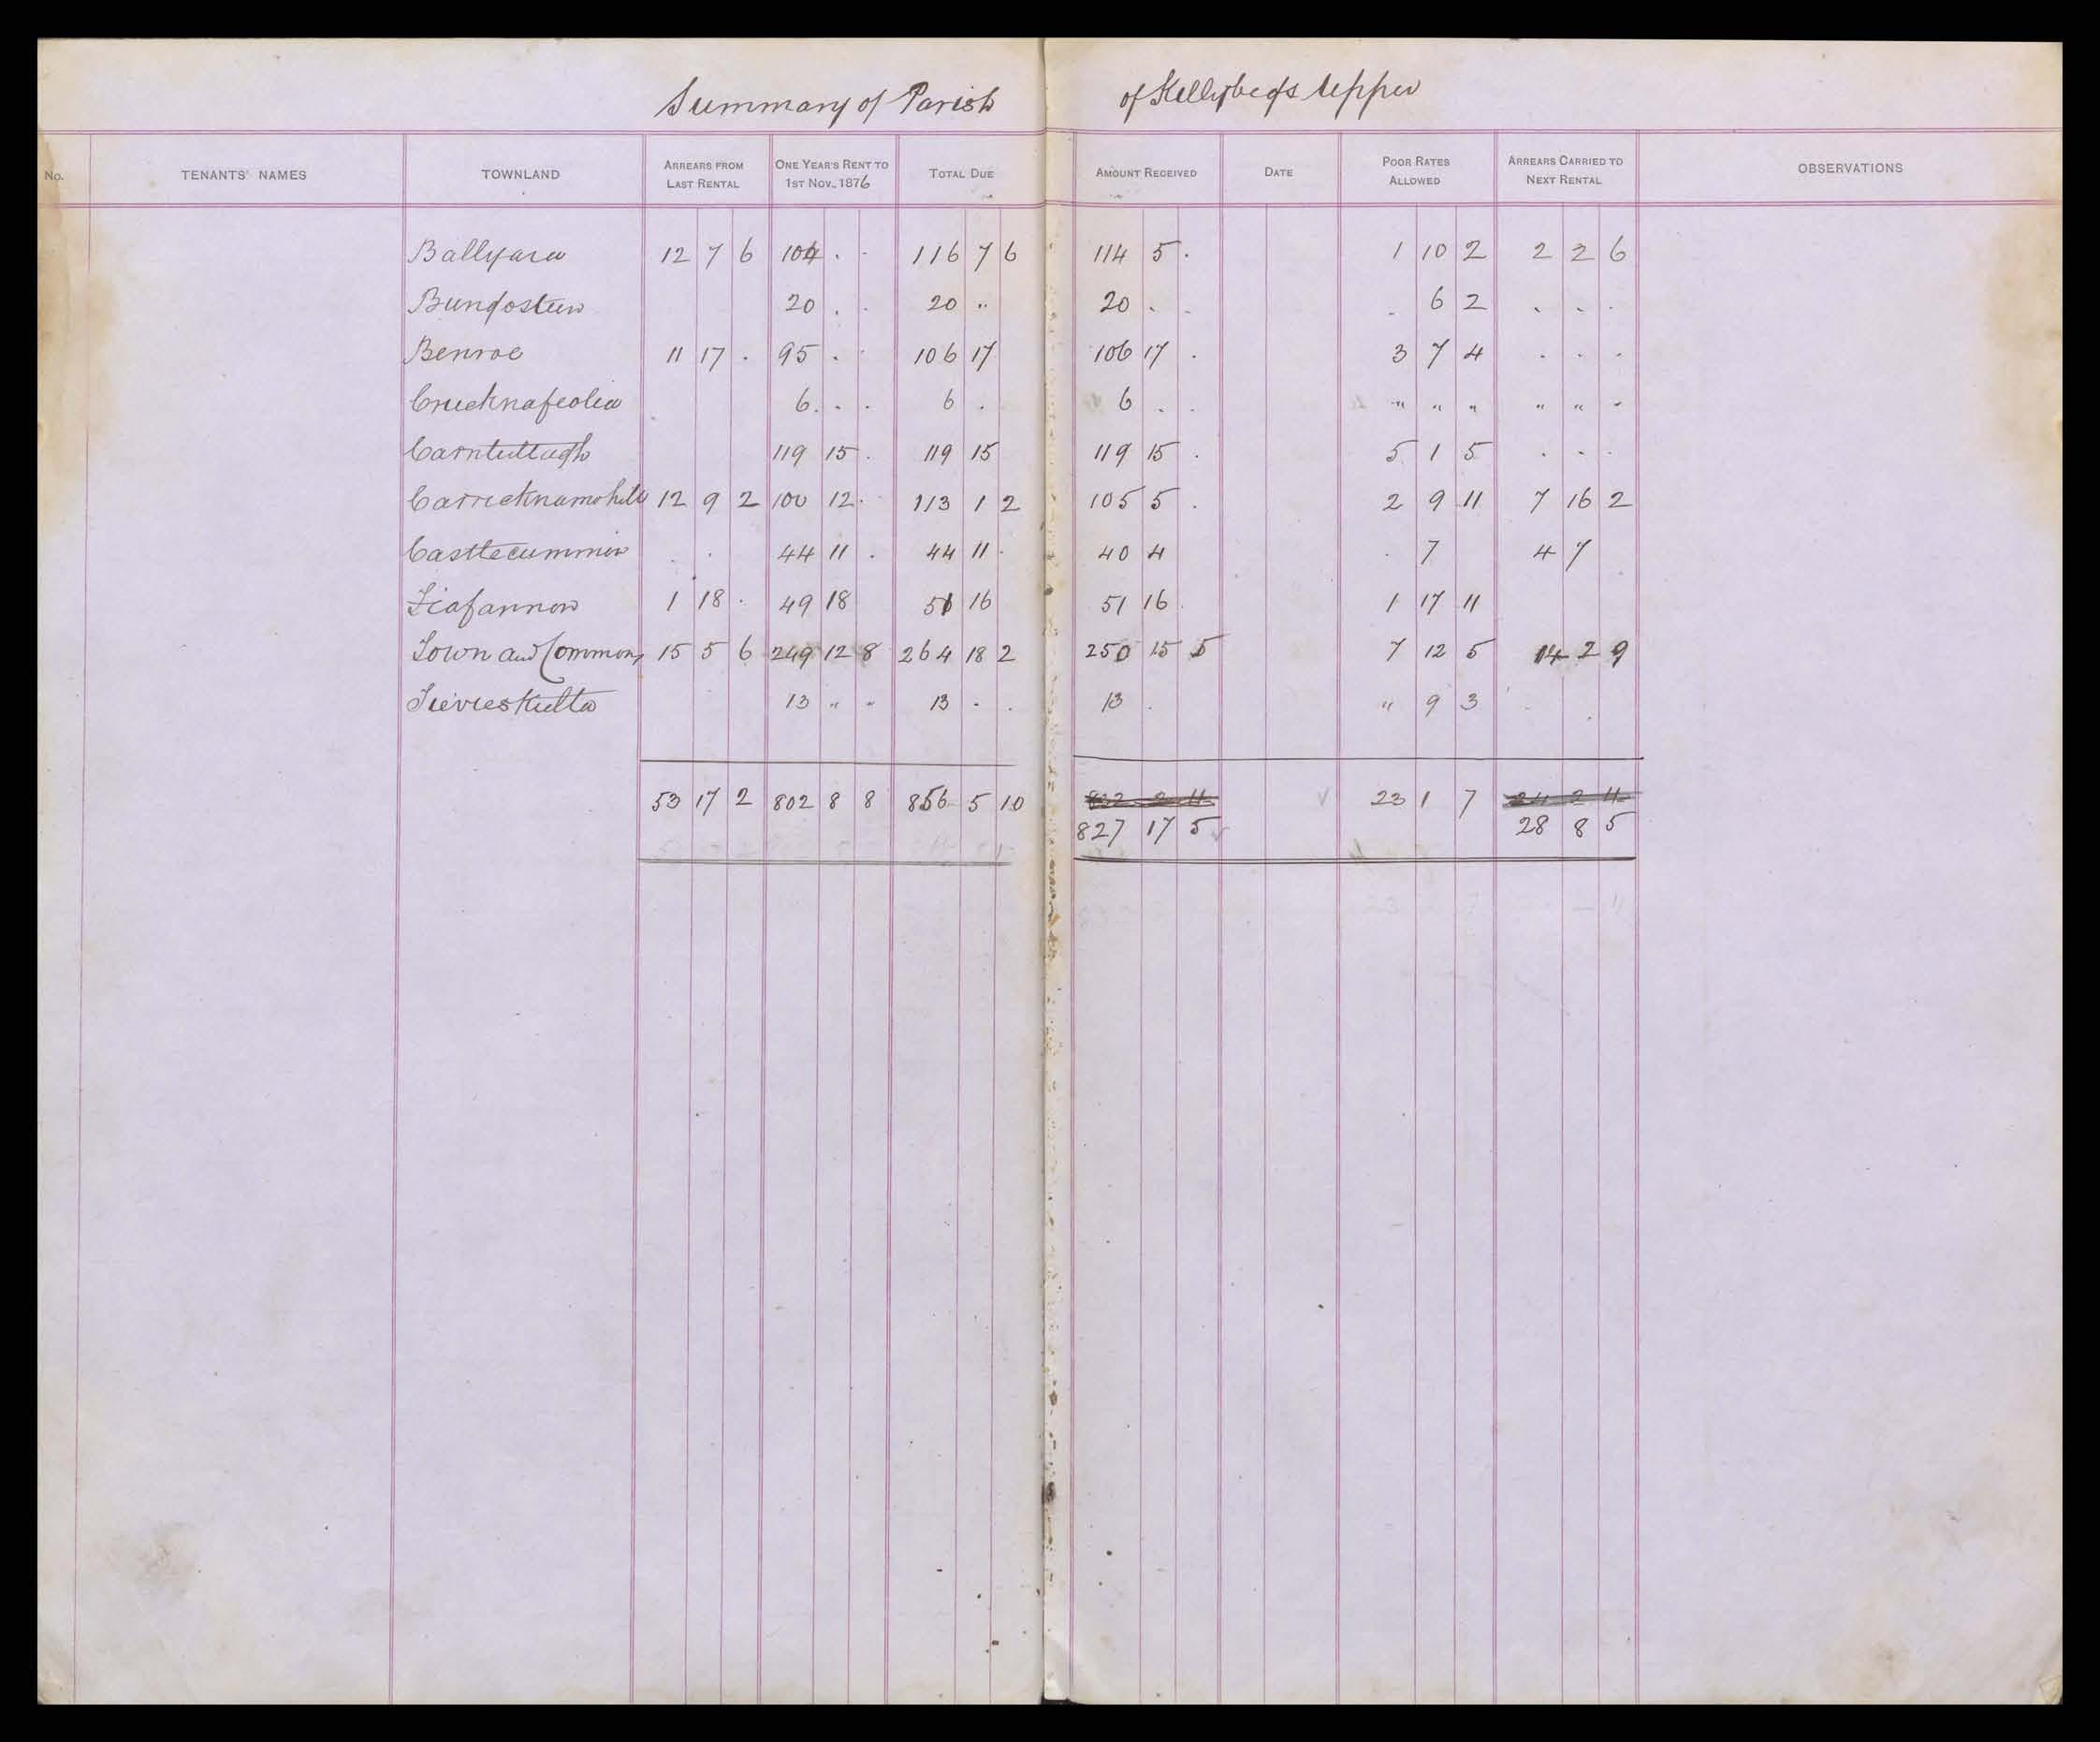 Summary of Parish of Killybegs Upper
No. TENANTS' NAMES TOWNLAND ARREARS FROM LAST RENTAL ONE YEAR'S RENT TO 1ST NOV., 1876 TOTAL DUE AMOUNT RECEIVED DATE POOR RATES ALLOWED ARREARS CARRIED TO NEXT RENTAL OBSERVATIONS
Ballyara 12 7 6 104 . . 116 7 6 114 5 . 1 10 2 2 2 6
Bungosteen 20 . . 20 .. 20 . . . 6 2 . . .
Benroe 11 17 . 95 . . 106 17 106 17 . 3 7 4 . . .
Crucknafeola 6 . . 6 . 6 . . " " " " " "
Carntullagh 119 15 . 119 15 119 15 . 5 1 5 . . .
Carricknamohill 12 9 2 100 12 . 113 1 2 105 5 . 2 9 11 7 16 2
Castlecummin . . 44 11 . 44 11 . 40 4 . 7 4 7
Fiafannon 1 18 . 49 18 51 16 51 16 . 1 17 11
Town and Commons 15 5 6 249 12 8 264 18 2 250 15 5 7 12 5 14 2 9
Tievieskelta 13 " " 13 . . 13 . " 9 3 . .
53 17 2 802 8 8 856 5 10 832 2 11 23 1 7 24 2 11
827 17 5 28 8 5